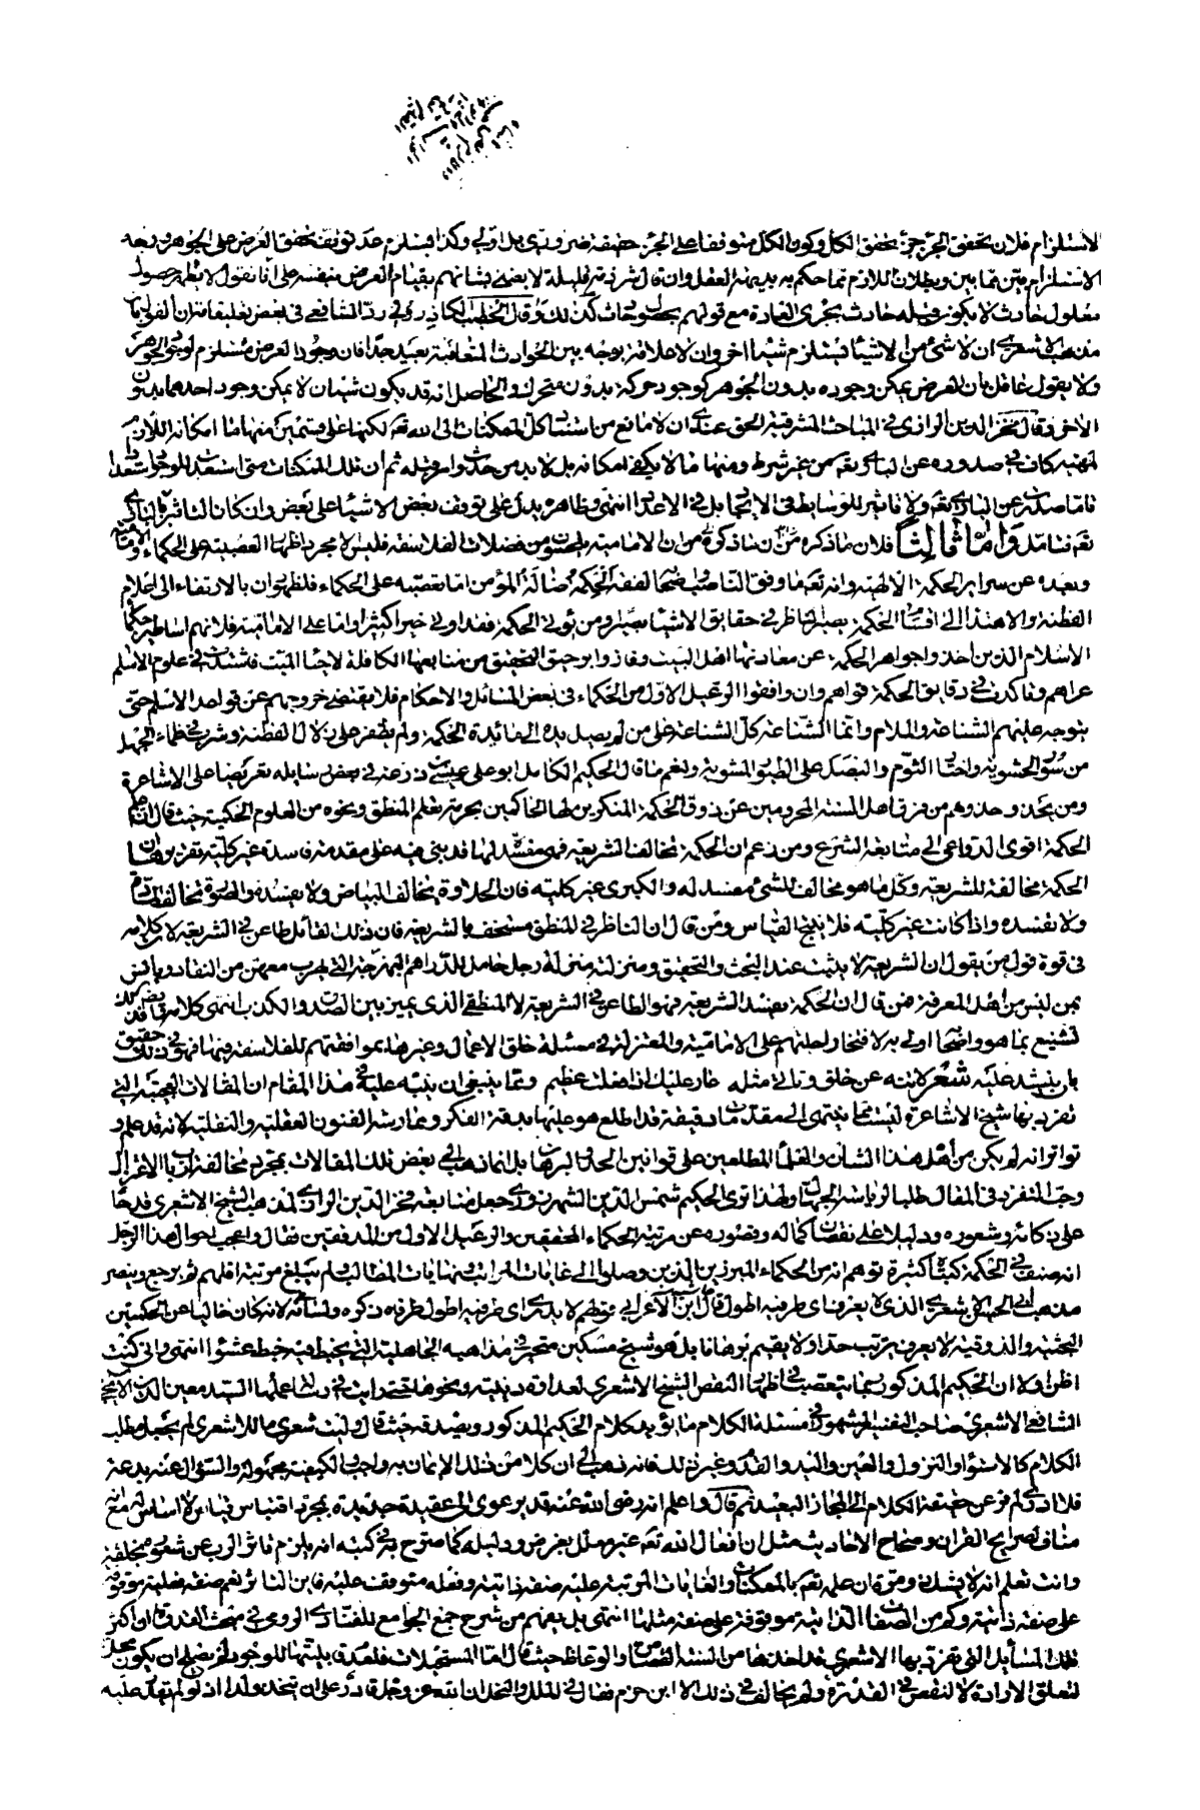 الاستلزام فلان تحقق الجزء جزء تحقق الكل وكون الكل متوقفا على الجزء حقيقة ضرورى بل اولى وكذا استلزام عدم توقف تحقق العرض على الجوهر ورفعه
الاستلزام بين بما بين وبطلان اللازم مما حكم به بديهة العقل وان قال شرذمة قليلة لا يعبئ بشانهم بقيام العرض بنفسه على أنا نقول لا يظهر حصول
معلول حادث لا يكون قبله حادث بجرى العادة مع قولهم كذلك وقال الخطيب الكاذرونى فى رد الشافعى فى بعض تعليقاته ان القول بما
مذهب الاشعرى ان لا شئ من الاشياء يستلزم شيئا اخر وان لا علاقة بوجه بين الحوادث المتعاقبة بعيد جدا فان وجود العرض مستلزم لوجود الجوهر
ولا يقول عاقل بان العرض يمكن وجوده بدون الجوهر كوجود حركة بدون متحرك والحاصل انه قد يكون شيئان لا يمكن وجود احدهما بدون
الاخر وقال فخر الدين الرازى فى المباحث المشرقية الحق عندى ان لا مانع من استناد كل الممكنات الى الله تعالى لكنها على قسمين منها ما امكانه اللازم
لمهيته كاف فى صدوره عن البارى تعالى من غير شرط ومنها ما لا يكفى امكانه بل لا بد من حدوث امر قبله ثم ان تلك الممكنات متى استعدت للوجود استعدادا
تاما صدرت عن البارى تعالى ولا تاثير للوسايط فى الايجاد بل فى الاعداد انتهى وظاهره يدل على توقف بعض الاشياء على بعض وان كان التاثير للبارى
تعالى فتامل وأما ثالثا فلان ما ذكره من ان ما ذكره من ان الامامية المحشوين من فضلات الفلاسفة فليس الا مجرد اظهار العصبية على الحكماء والامامية
وبعده عن سراير الحكمة الالهية وانه تعالى ما وفق الناصب الحكمة ضالة المؤمن اما تعصبه على الحكماء فلظهور ان بالارتقاء الى اعلام
الفطنة والاهتداء الى اقسام الحكمة يصير الناظر فى حقايق الاشياء بصيرا ومن يؤتى الحكمة فقد اوتى خيرا كثيرا واما على الامامية فلانهم اساطين حكماء
الاسلام الذين اخذوا جواهر الحكمة عن معادنها اهل البيت وفازوا برحيق التحقيق من منابعها الكافلة لاحياء الميت فشدت فى علوم الاسلام
عراهم وتاكدت فى دقايق الحكمة قواهم وان وافقوا الرعيل الاول من الحكماء فى بعض المسائل والاحكام فلا يقتضى خروجهم عن قواعد الاسلام حتى
يتوجه عليهم الشناعة والملام وانما الشناعة كل الشناعة على من لم يصل يده الى مائدة الحكمة ولم يظفر على زلال الفطنة وشرع فى ظماء الجهل
من سؤر الحشوية واختار الثوم والبصل على الطيور المشوية ونعم ما قال الحكيم الكامل ابو على عيسى بن زرعة فى بعض رسايله تعريضا على الاشاعرة
ومن يحذو حذوهم من فرق اهل السنة المحرومين عن ذوق الحكمة المنكرين لها الحاكمين بحرمة تعلم المنطق ونحوه من العلوم الحكمية حيث قال ان علم
الحكمة اقوى الدواعى الى متابعة الشرع ومن زعم ان الحكمة مخالفة للشريعة فهى مفسدة لها قد بنى فيه على مقدمة فاسدة غير كلية تقريرها ان
الحكمة مخالفة للشريعة وكل ما هو مخالف للشئ مفسد له والكبرى غير كلية فان الحلاوة يخالف البياض ولا يفسده والصورة تخالف المادة
ولا تفسده واذا كانت غير كلية فلا ينتج القياس ومن قال ان الناظر فى المنطق مستخف بالشريعة فان ذلك لقائل طاعن فى الشريعة لان كلامه
فى قوة قول من يقول ان الشريعة لا يثبت عند البحث والتحقيق ومنزلته منزلة رجل حامل للدراهم البهرجة التى يهرب معهن من النقاد ويانس
بمن ليس من اهل المعرفة فمن قال ان الحكمة يفسد الشريعة فهو الطاعن فى الشريعة لا المنطقى الذى يميز بين الصدق والكذب انتهى كلامه
تشنيع بما هو واضحا اولى به لافتخار اهلهم على الامامية والمعتزلة فى مسئلة خلق الاعمال وغيرها بموافقتهم للفلاسفة فيها فهو فى ذلك حقيق
بان ينشد عليه شعر لا تنه عن خلق وتاتى مثله عار عليك اذا فعلت عظيم ومما ينبغى ان ينبه عليه فى هذا المقام ان المقالات العجيبة التى
تفرد بها شيخ الاشاعرة ليست مما ينتهى الى مقدمات دقيقة قد اطلع هو عليها بدقة الفكر وممارسة الفنون العقلية والنقلية لانه قد علم و
تواتر انه لم يكن من اهل هذا الشان والعلماء المطلعين على قوانين الحد والبرهان بل انما ذهب الى بعض تلك المقالات بمجرد مخالفة ارباب الاعتزال
وحب التفرد فى المقال طلبا لرياسة الجهال ولهذا ترى الحكيم شمس الدين الشهرزورى جعل متابعة فخر الدين الرازى لمذهب الشيخ الاشعرى قدحا
على ذكائه وشعوره ودليلا على نقصان كماله وقصوره عن مرتبة الحكماء المحققين والرعيل الاول من المدققين فقال واعجب احوال هذا الرجل
انه صنف فى الحكمة كتبا كثيرة توهم انه من الحكماء المبرزين الذين وصلوا الى غايات المراتب ونهايات المطالب ولم يبلغ مرتبة اقلهم ثم يرجع وينصر
مذهب ابى الحسن الاشعرى الذى لا يعرف اى طرفيه اطول قال ابن الاعرابى لا يدرى اى طرفيه اطول طرفاه ذكره ولسانه لانه كان خاليا عن الحكمتين
البحثية والذوقية لا يعرف يرتب حدا ولا يقيم برهانا بل هو شيخ مسكين متحير فى مذاهبه الجاهلية التى يخبط فيه خبط عشوا انتهى وانى كنت
اظن اولا ان الحكيم المذكور ربما يتعصب فى اظهار النقص للشيخ الاشعرى لعداوة دينية ونحوها حتى رايت فى رسالة عملها السيد معين الدين الايجى
الشافعى الاشعرى صاحب التفسير المشهور فى مسئلة الكلام ما يؤيد كلام الحكيم المذكور ويصدقه حيث قال وليت شعرى ما للاشعرى لم يجعل مطلب
الكلام كالاستواء والنزول والعين واليد والقدم وغير ذلك فانه ذهب الى ان كلا من ذلك الايمان به واجب والكيفية مجهولة والسؤال عنه بدعة
فلا ادرى لم فر عن حقيقة الكلام الى المجاز البعيد ثم قال واعلم انه رضى الله عنه قد يرعوى الى عقيدة جديدة بمجرد اقتباس قياس لا اساس له مع انه
مناف لصرايح القران وصحاح الاحاديث مثل ان افعال الله تعالى غير معلل بغرض ودليله كما صرح به فى كتبه انه يلزم تاثر الرب عن شعوره بخلقه
وانت تعلم انه لا يشك ذو مرة ان علمه تعالى بالممكنات والغايات المترتبة عليه صفة ذاتية وفعله متوقف عليه فاين التاثر نعم صفة فعلية موقوفة
على صفة ذاتية وكم من الصفات الذاتية موقوفة على صفة مثلها انتهى بل يفهم من شرح جمع الجوامع للفنارى الرومى فى مبحث القدرة ان اكثر
تلك المسايل التى تفرد بها الاشعرى قد اخذها من السنة القصاص والوعاظ حيث قال اما المستحيلات فلعدم قابليتها للوجود لم تصلح ان يكون محلا
لتعلق الارادة لا لنقص فى القدرة ولم يخالف فى ذلك الا ابن حزم فقال فى الملل والنحل ان الله عز وجل قادر على ان يتخذ ولدا اذ لو لم يقدر عليه